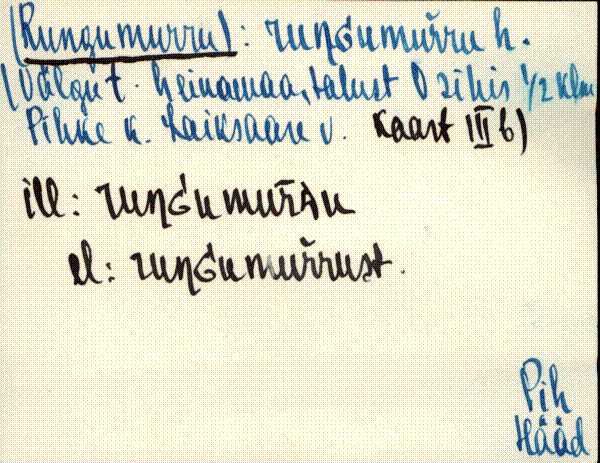 (Rungumurru): ruŋǴumuřru h.
(Välgu t. heinamaa, talust O sihis 1/2 klm
Pihke k. Laiksaare v. Kaart III b)
ill: ruŋǴumuřru
el: ruŋǴumuřrust.
Pih
Hääd